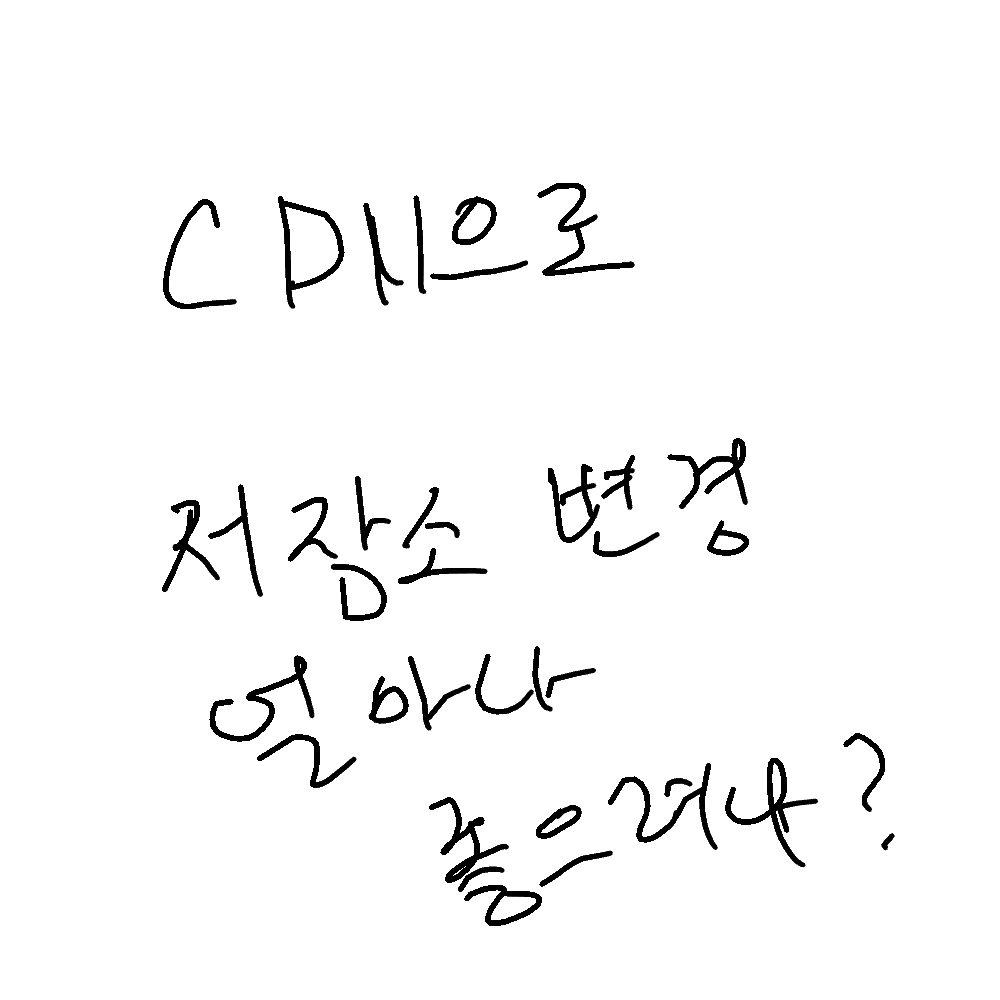 CDN으로
저장소 변경
얼마나
좋으려나?